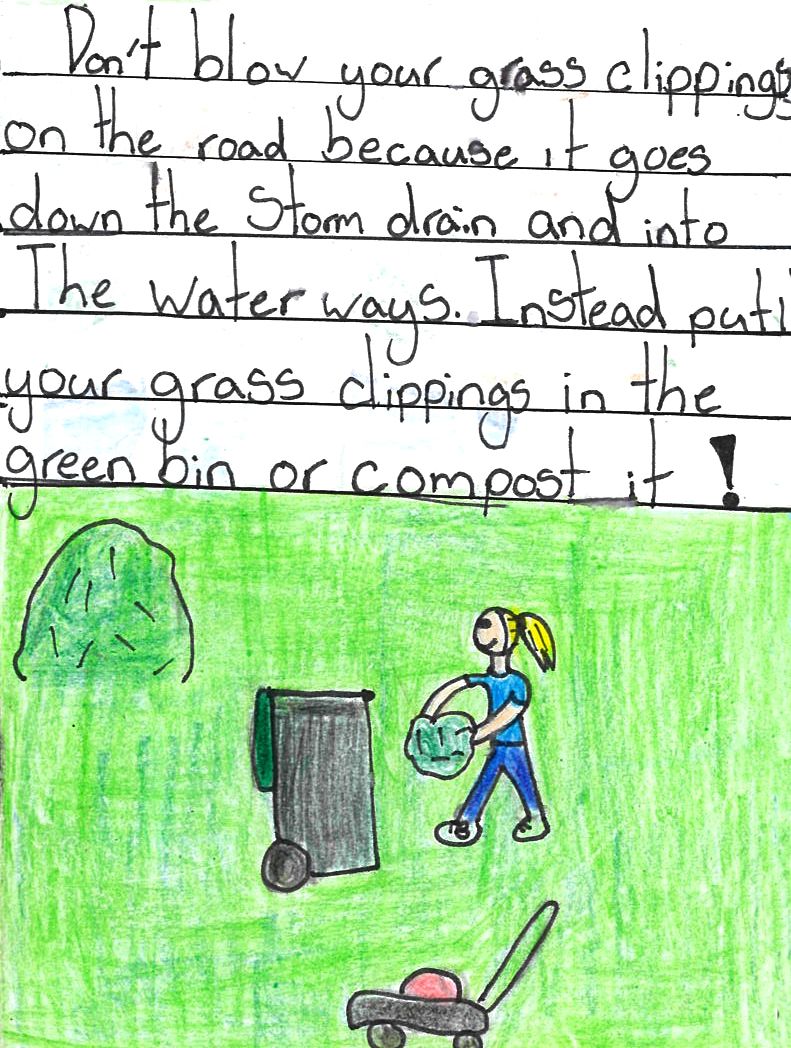 Don't blow your grass clippings
on the road because it goes
down the Storm drain and into
The water ways. Instead put
your grass clippings in the
green bin or compost it !